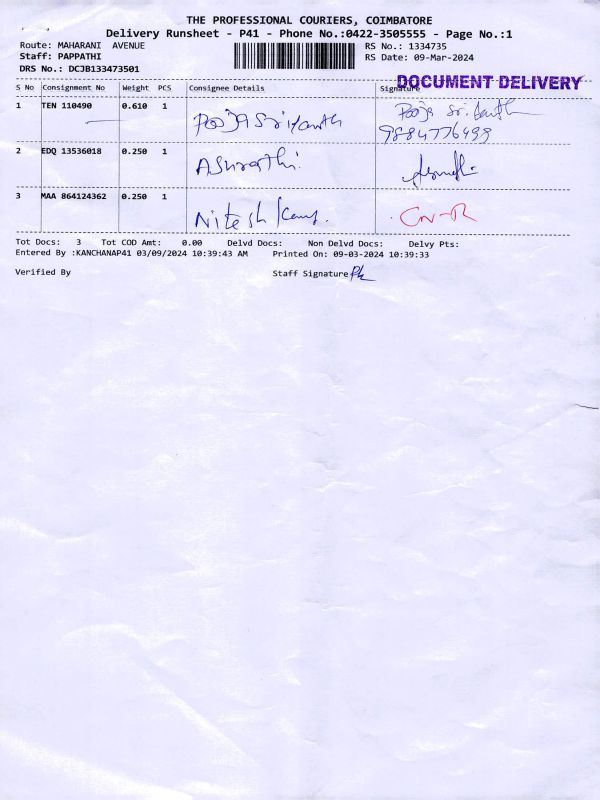 THE PROFESSIONAL COURIERS, COIMBATORE
Delivery Runsheet - P41 - Phone No.:0422-3505555 - Page No.:1
Route: MAHARANI AVENUE RS No.: 1334735
Staff: PAPPATHI RS Date: 09-Mar-2024
DRS No.: DCJB133473501
DOCUMENT DELIVERY
S No Consignment No Weight PCS Consignee Details Signature
1 TEN 110490 0.610 1 Pooja Srikanth Pooja Srikanth
9884776499
2 EDQ 13536018 0.250 1
3 MAA 864124362 0.250 1 Nitesh
Tot Docs: 3 Tot COD Amt: 0.00 Delvd Docs: Non Delvd Docs: Delvy Pts:
Entered By :KANCHANAP41 03/09/2024 10:39:43 AM Printed On: 09-03-2024 10:39:33
Verified By Staff Signature